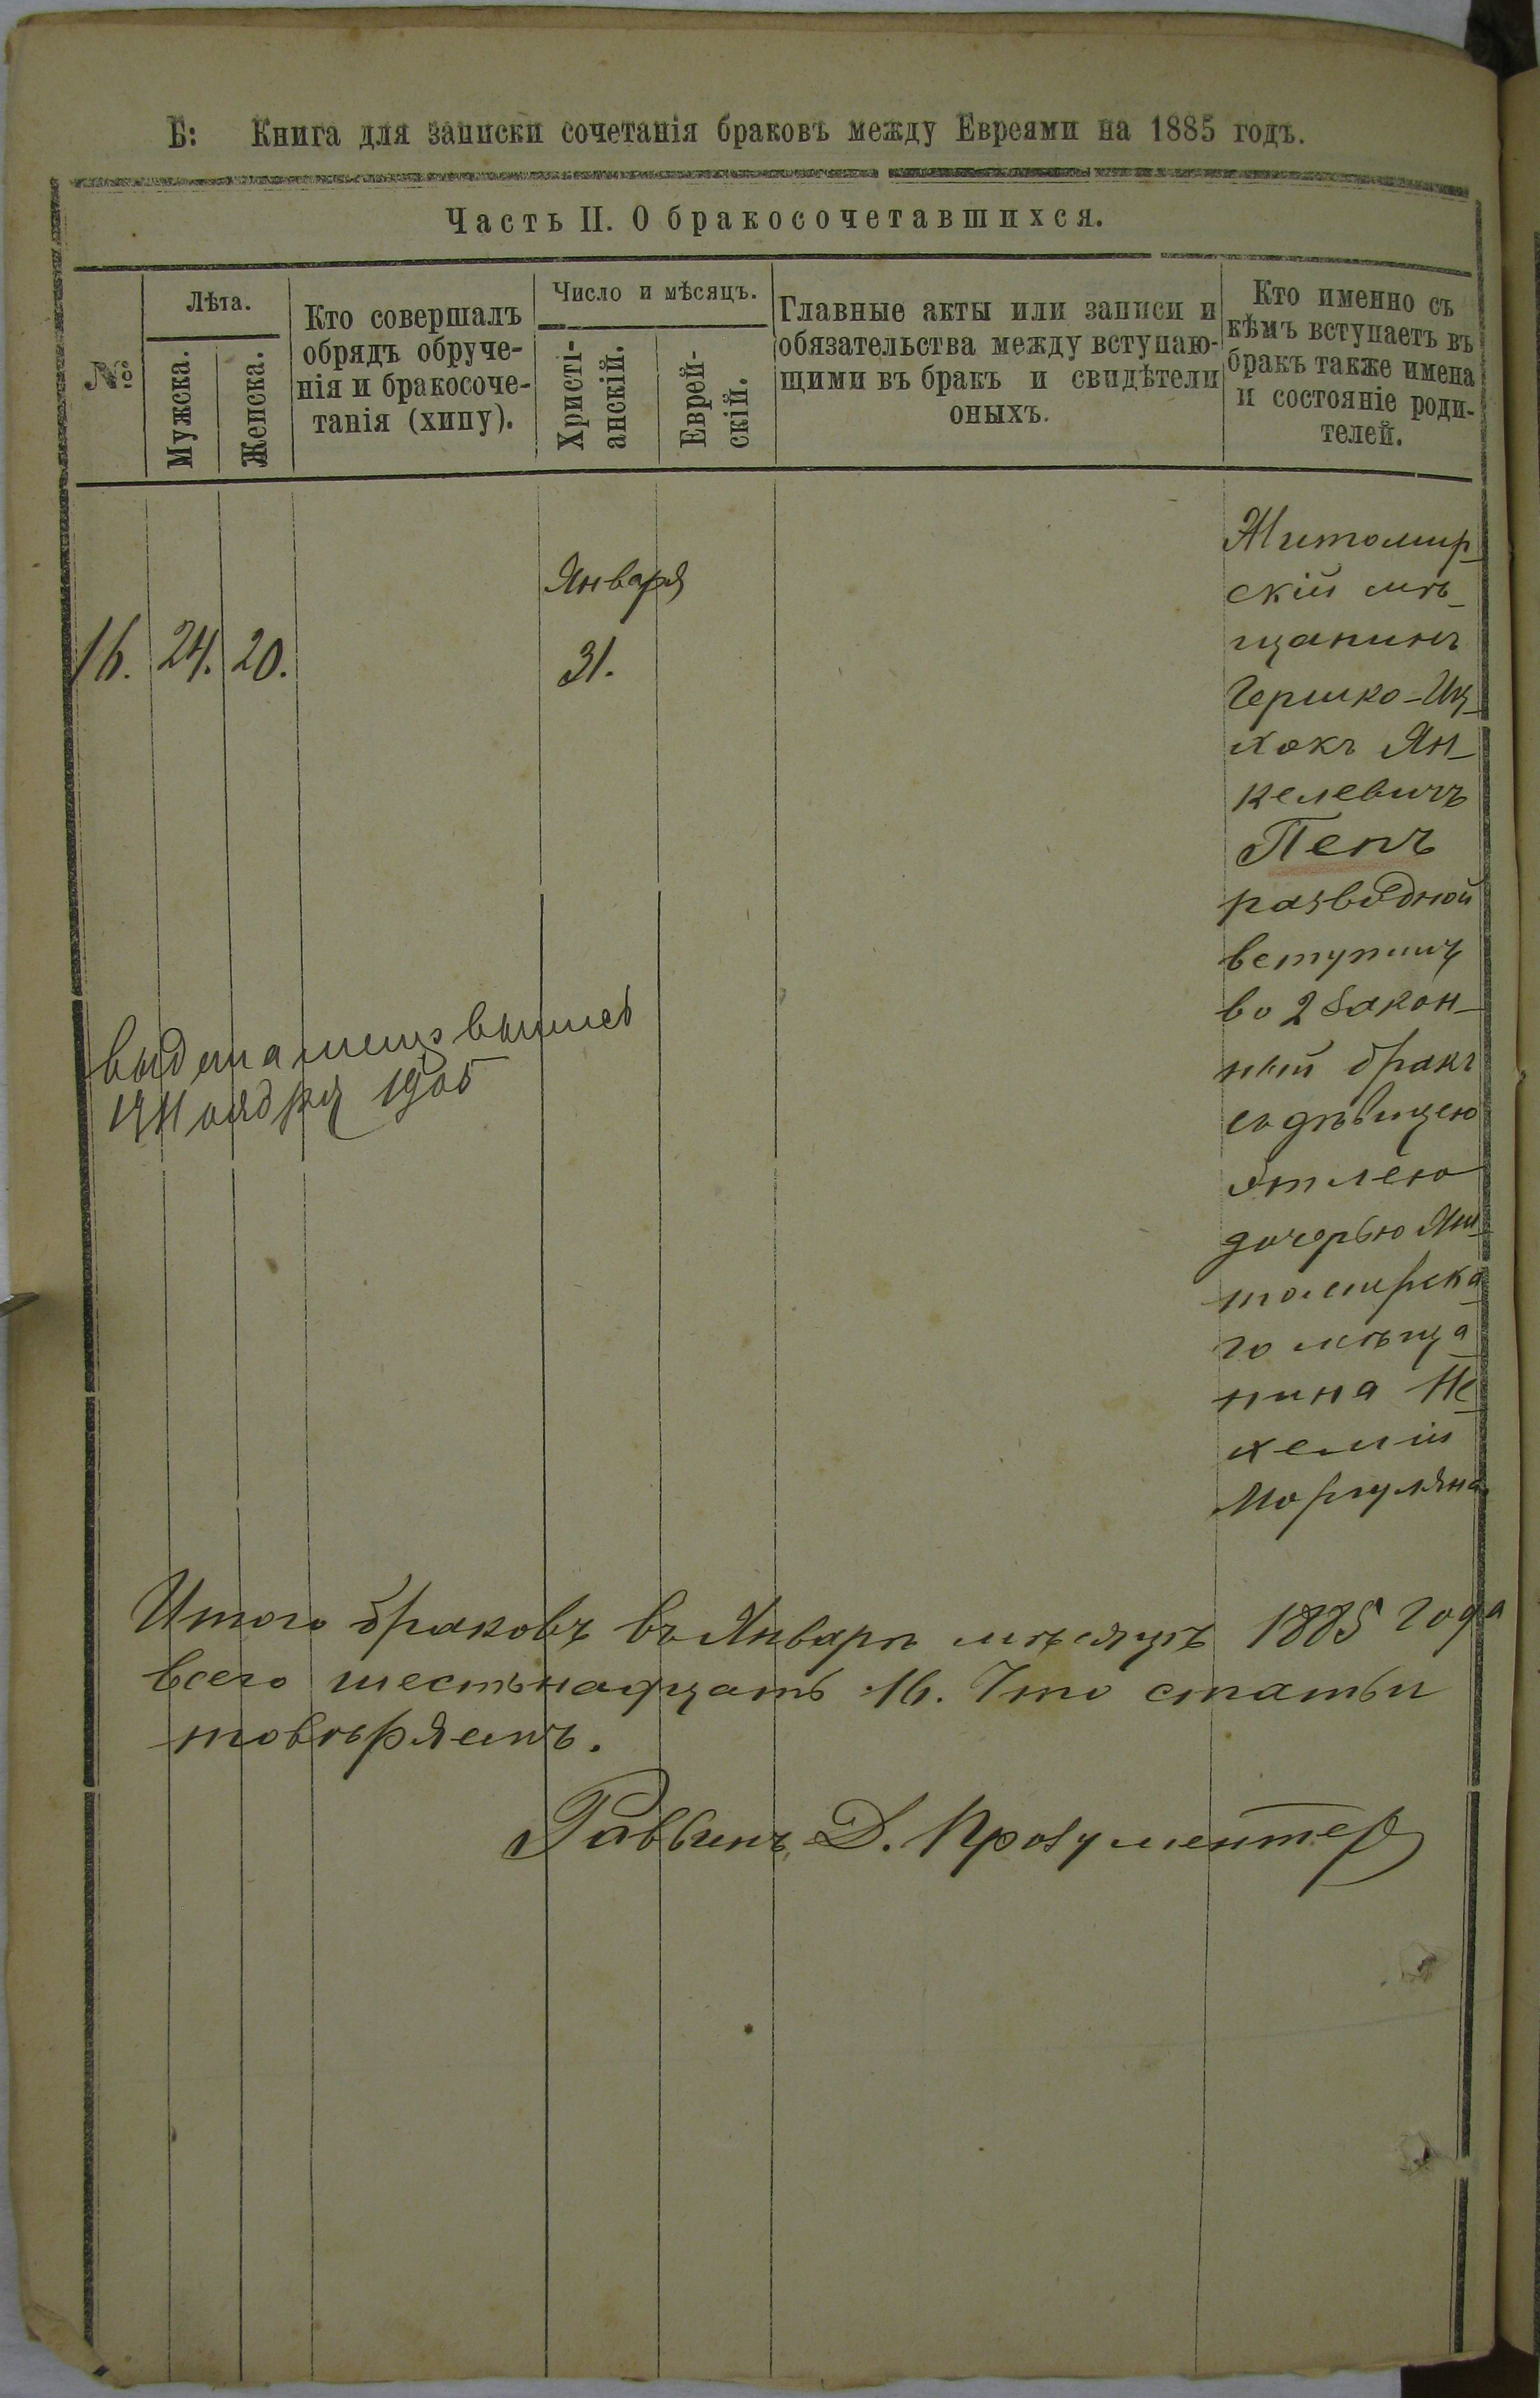 Б: Книга для записки сочетанія браковъ между Евреями на 1885 годъ.
Часть II. О бракосочетавшихся.
№
Лѣта.
Мужска.
Женска.
Кто совершалъ
обрядъ обруче-
нія и бракосоче-
танія (хипу).
Число и мѣсяцъ.
Христі-
анскій.
Еврей-
скій.
Главные акты или записи и
обязательства между вступаю-
щими въ бракъ и свидѣтели
оныхъ.
Кто именно съ
кѣмъ вступаетъ въ
бракъ также имена
и состояніе роди-
телей.
Января
16. 24. 20. 31.
Житомир-
скій мѣ-
щанинъ
Гершко-Иц-
хокъ Ян-
келевичъ
Пепъ
разводной
вступилъ
во 2 закон-
ный бракъ
съ дѣвицею
Этлею
дочерью Жи-
томирска-
го мѣща-
нина Не-
хеміи
Маргуляна
1905
Итого браковъ въ Январѣ мѣсяцѣ 1885 года
всего шестьнадцать 16. Что статьи
повѣряемъ.
Раввинъ Д. Прозументер